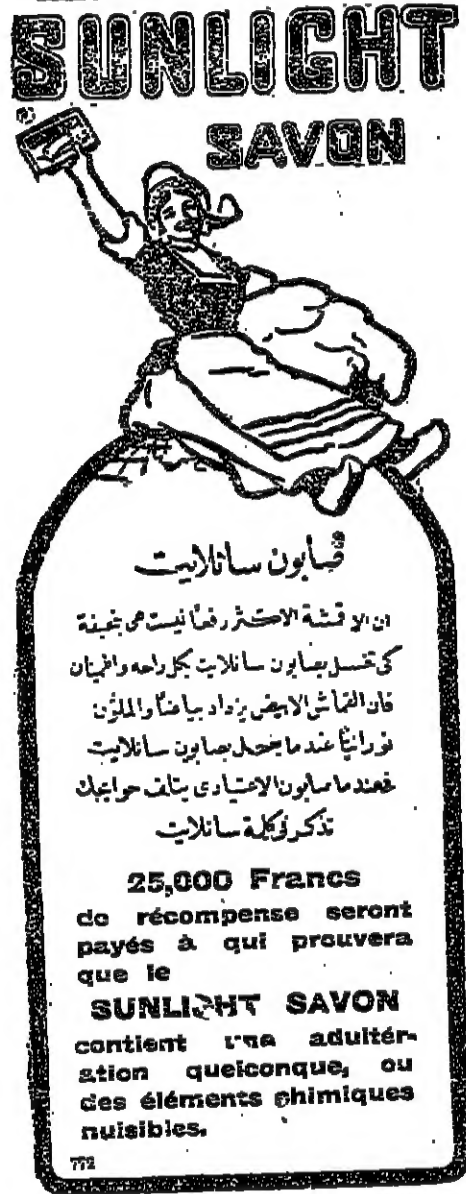 SUNLIGHT
SAVON
صابون سانلايت
ان الاقمشة الاكثر رفعاً ليست هى بنحيفة
كى تغسل بصابون سانلايت بكل راحه واطمئنان
فان القماش الابيض يزداد بياضاً والملوّن
نورانيّاً عندما يغسل بصابون سانلايت
فعندما صابون الاعتيادى يتلف حوايجك
تذكر كلمة سانلايت
25,000 Francs
de récompense seront
payés à qui prouvera
que le
SUNLIGHT SAVON
contient une adultér-
ation quelconque, ou
des éléments chimiques
nuisibles.
772